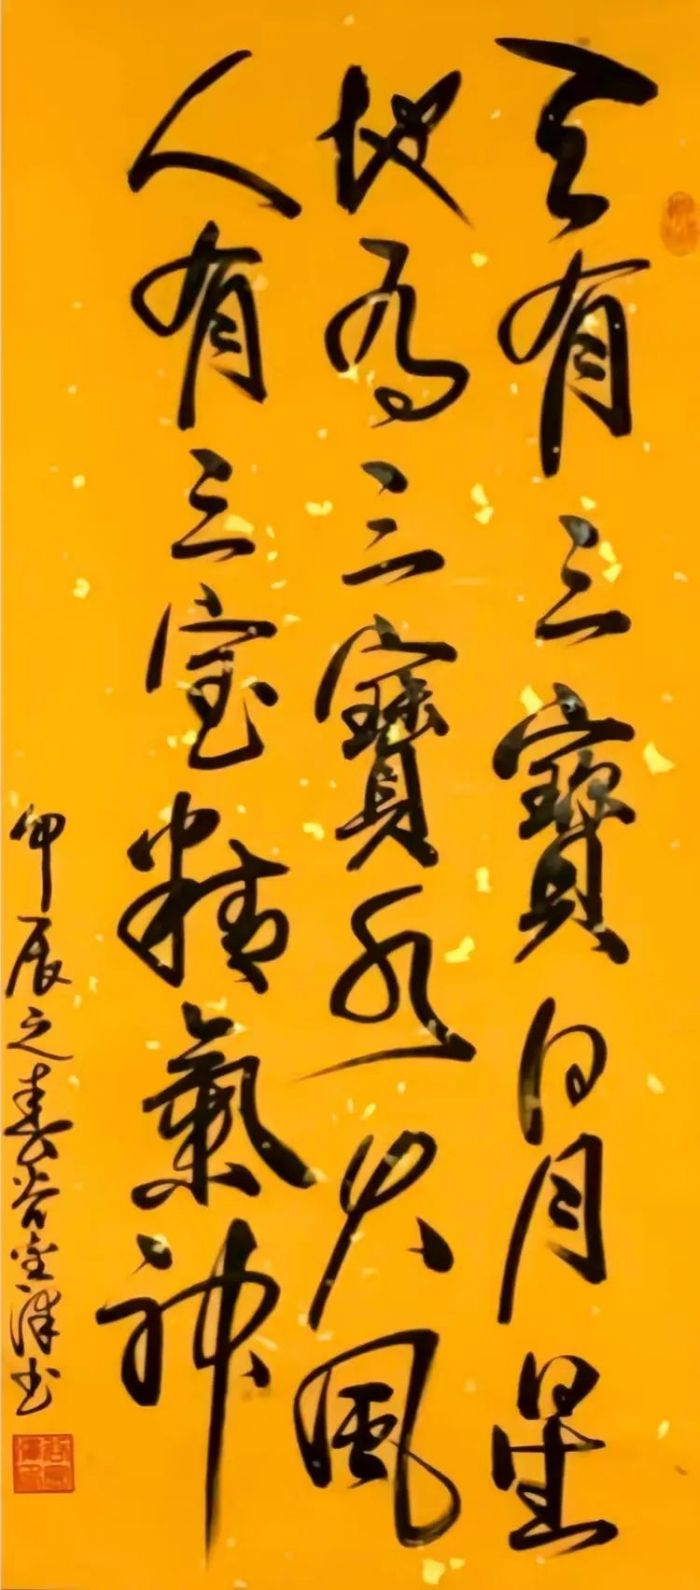 天有三寶日月星
地为三寶水火風
人有三宝精氣神
甲辰之春谷書